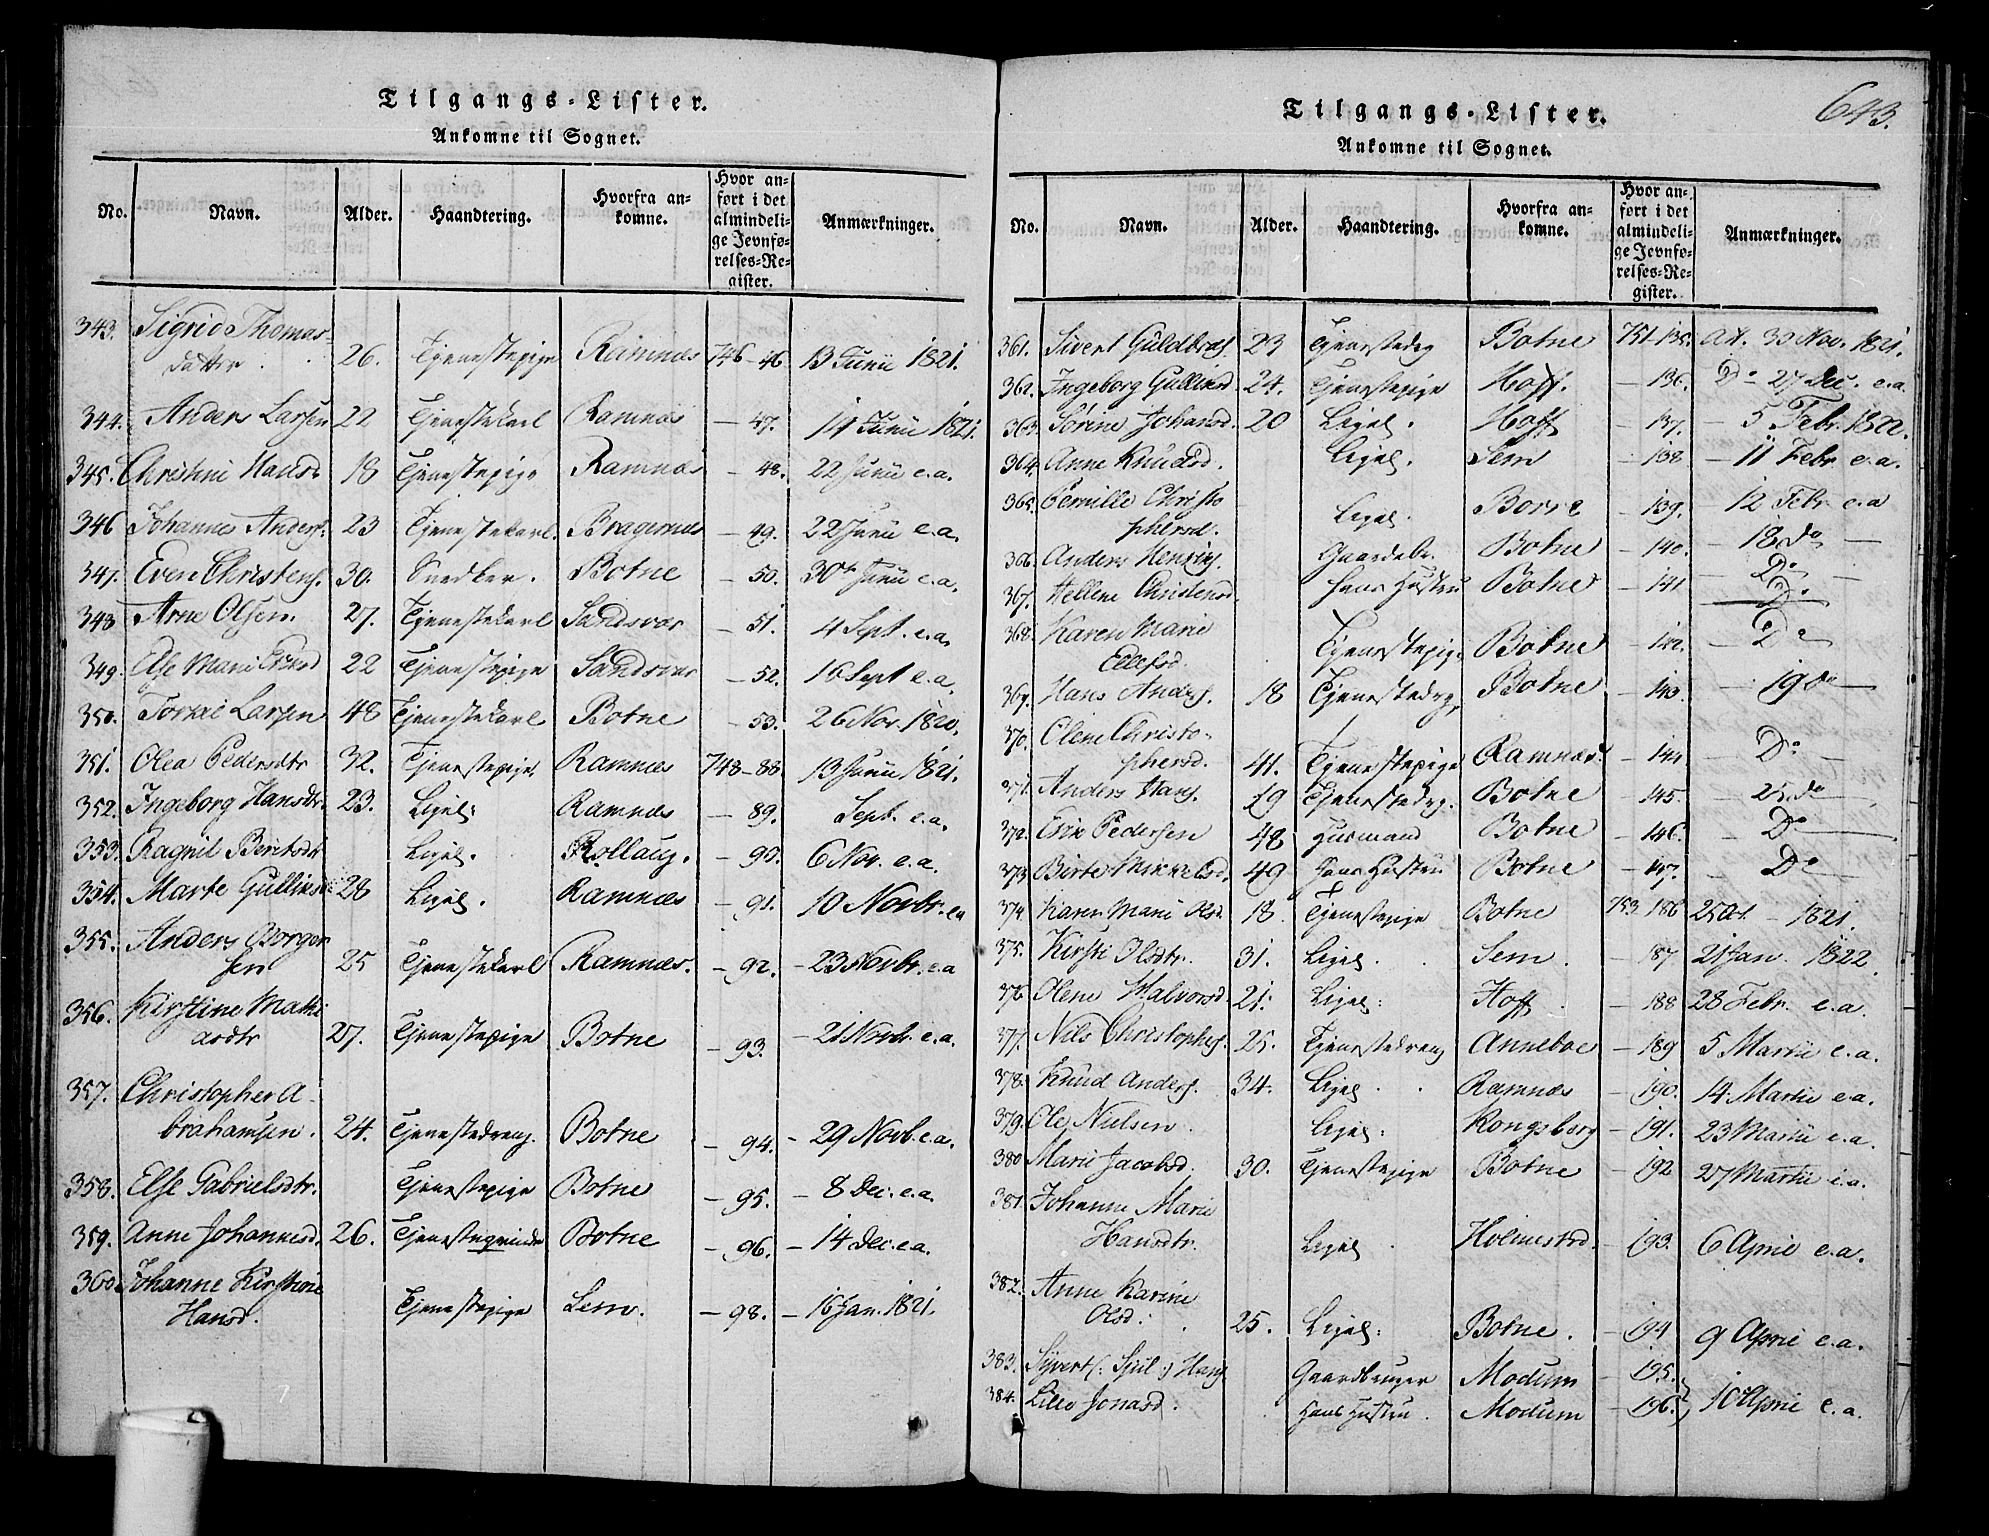 Tilgangs-Lister.
Ankomne til Sognet.
No. Navn. Alder. Haandtering. Hvorfra ankomne. Hvor anført i det almindelige Jevnførelses-Register. Anmærkninger.
343. Sigrid Thomas-
datter. 26. Tjenestepige Ramnæs 746-46 13 Junii 1821.
344. Anders Larsen 22 Tjenestekarl Ramnæs - 47. 14 Junii 1821.
345. Christine Hansd. 18 Tjenestepige Ramnæs - 48. 22 Junii e.a.
346 Johannes Anders. 23 Tjenestekarl. Bragernæs - 49. 22 Junii e.a.
347. Even Christens. 30. Snedker. Botne - 50. 30t Junii e.a.
348 Arne Olsen. 27. Tjenestekarl Sandsvær - 51. 4 Sept. e.a.
349. Else Marie Ericsd 22 Tjenestepige Sandsvær - 52. 16 Sept e.a.
350. Torkel Larsen 48 Tjenestekarl Botne - 53. 26 Nov. 1820.
351. Olea Pedersdtr 32. Tjenestepige Ramnæs 748-88 13 Junii 1821.
352. Ingeborg Hansdtr. 23. Ligel: Ramnæs - 89. Sept. e.a.
353. Ragnil Beritsdtr Ligel. Rollaug. - 90. 6 Nov. e.a.
354. Marte Gulliksd 28 Ligel. Ramnæs - 91. 10 Novbr. ea
355. Anders Borger
sen 25 Tjenestekarl Ramnæs. - 92. - 23 Novbr. e.a
356. Kirstine Mathi
asdtr 27. Tjenestepige Botne - 93. - 21 Novb. e.a.
357. Christopher A-
brahamsen. 24. Tjenestedreng. Botne - 94. - 29 Novb. e.a.
358. Else Gabrielsdtr. Tjenestepige Botne - 95. - 8 Dec. e.a.
359. Anne Johannesd. 26. Tjenesteqvinde Botne - 96. - 14 Dec. e.a.
360. Johanne Kirstine
Hansd. Tjenestepige Sem. - 98. - 16 Jan. 1821.
643.
Tilgangs-Lister.
Ankomne til Sognet.
No. Navn. Alder. Haandtering. Hvorfra ankomne. Hvor anført i det almindelige Jevnførelses-Register. Anmærkninger.
361. Sivert Guldbras. 23 Tjenestedrg Botne 751-135. At. 30 Nov. 1821.
362. Ingeborg Gulliksd. 24. Tjenestepige Hoff. - 136. Do - 27 Dec. e.a.
363. Sorine Johansd. 20 Ligel. Hoff - 137. - 5 Febr. 1822.
364. Anne Knudsd. Ligel. Sem - 138 - 11 Febr e.a.
365. Pernille Christo
phersd. Ligel. Borre - 139. - 12 Febr e.a
366. Anders Henriks. Gaardebr. Botne - 140. - 18. do -
367. Hellene Christensd. Hans Hustru Botne - 141 - Do -
Do
368. Karen Marie
Ellefsd. Tjenestepige Botne - 142. - Do
369. Hans Anders. 18 Tjenestedrg. Botne - 143. - 19 do -
370. Olene Christo-
phersd. 41. Tjenestepige Ramnæs. - 144 - Do -
371. Anders Hans. 19 Tjenestedrg. Botne - 145. - 25 do -
372. Eric Pedersen 48 Husmand Botne - 146. - Do -
373 Birte Mikkelsd. 49 Hans Hustru Botne - 147. - Do -
374 Karen Marie Olsd. 18. Tjenestepige Botne 753 186 25 Oct. - 1821.
375. Kirsti Olsdtr. 31. Ligel. Sem. - 187 21 Jan. 1822.
376 Olene Halvorsd. 21. Ligel: Hoff. - 188 28 Febr. e.a.
377. Nils Christophers. 25. Tjenestedreng Anneboe - 189 5 Martii e.a.
378. Knud Anders. 34. Ligel. Ramnæs - 190. 14 Martii e.a.
379. Ole Nielsen. Ligel: Kongsberg - 191. 23 Martii e.a.
380 Marie Jacobsd. 30. Tjenestepige Botne - 192 27 Martii e.a.
381. Johanne Marie
Hansdtr. Ligel Holmestrd. - 193. 6 April e.a.
382. Anne Karine
Olsd. 25. Ligel: Botne. - 194 9 April e.a.
383. Syvert (: Spil :) Hans Gaardbruger Modum - 195.
384. Lisse Jonasd. Hans Hustru. Modum - 196. } 10 April e.a.